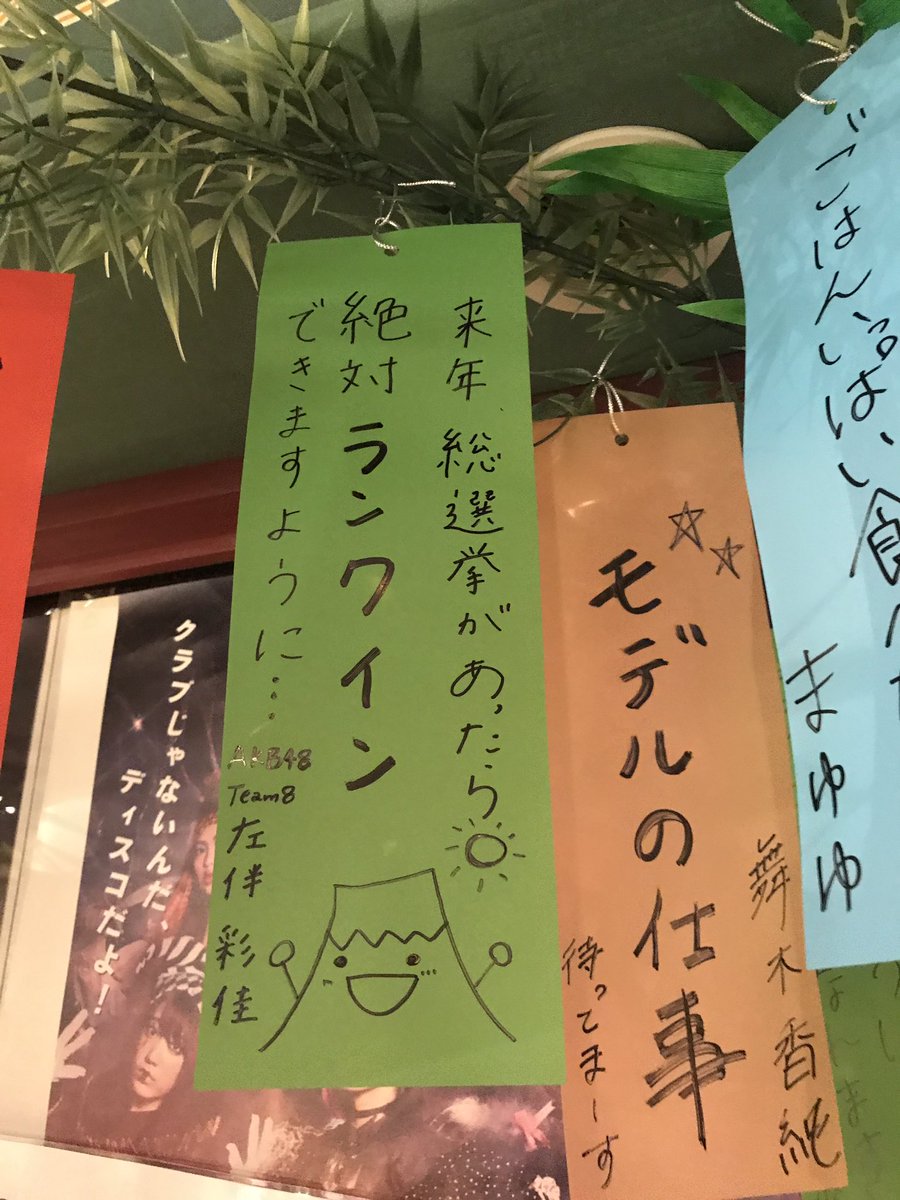 ごはんいっぱい食べた
まゆゆ
モデルの仕事
待ってまーす
舞木香純
来年、総選挙があったら
絶対ランクイン
できますように…
AKB48
Team8
左伴彩佳
クラブじゃないんだ、
ディスコだよ！